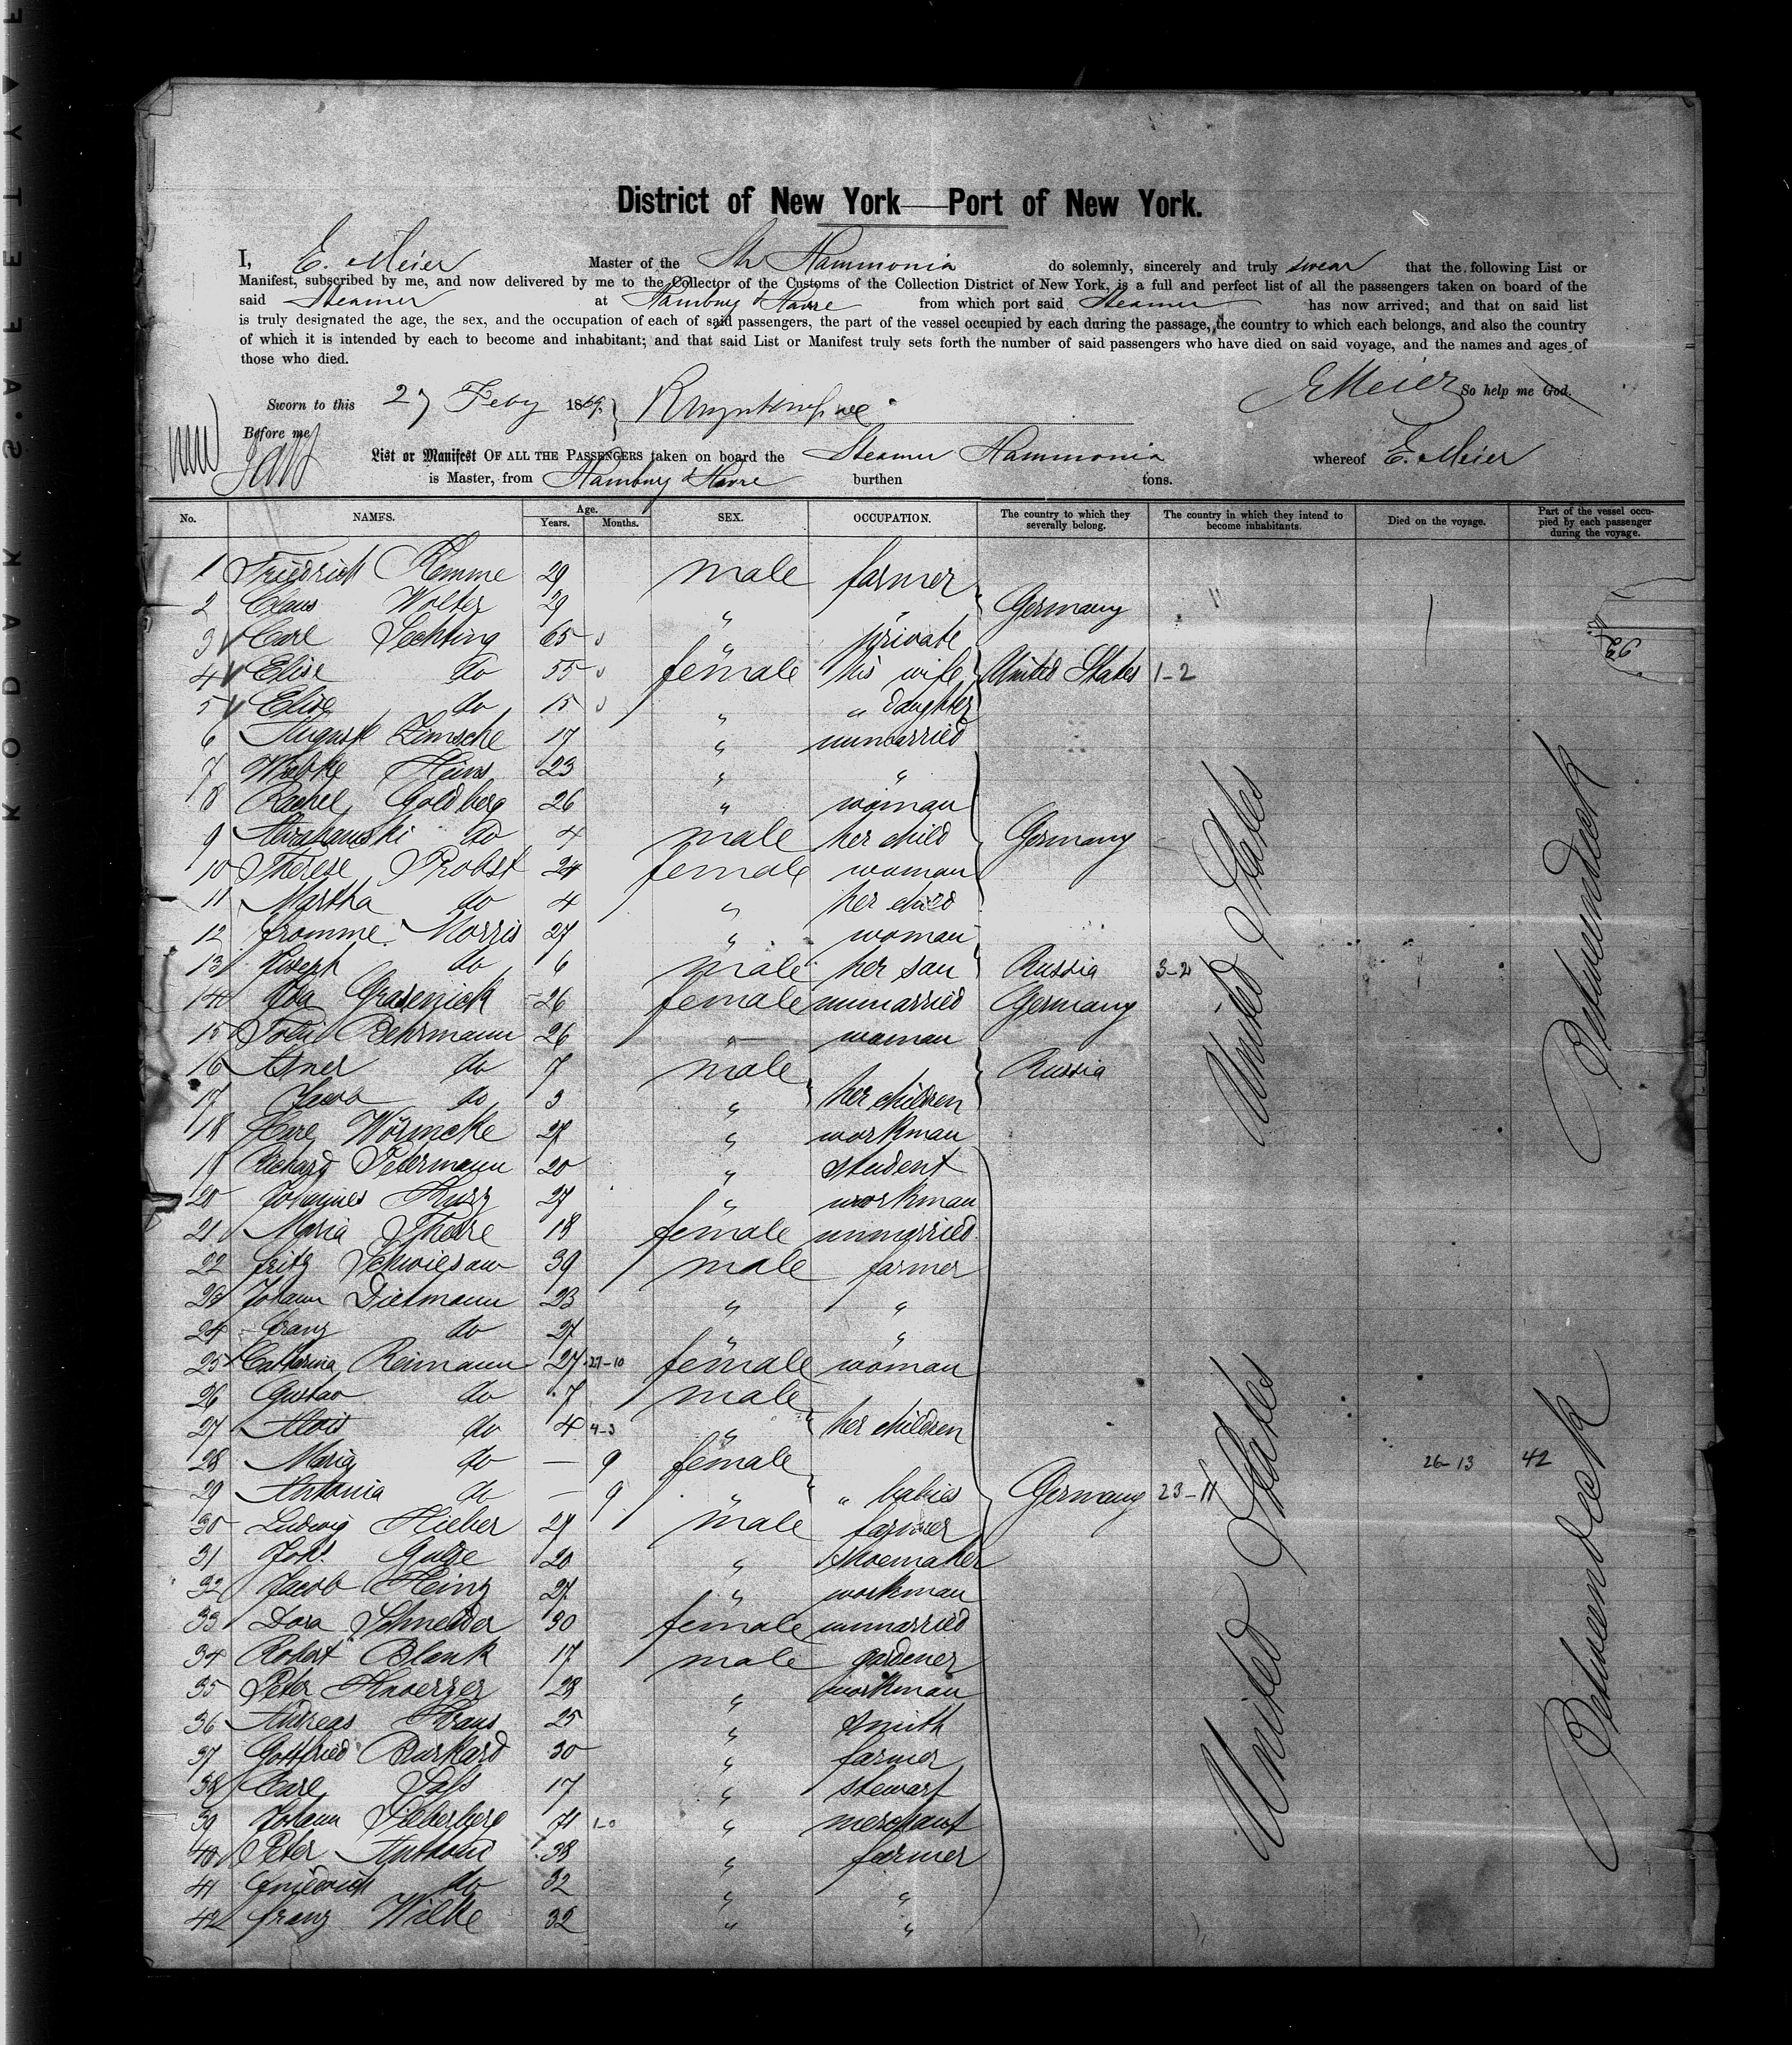 KODAK·SAFETY
District of New York—Port of New York.
I, E. Meier Master of the Str Hammonia do solemnly, sincerely and truly swear that the following List or
Manifest, subscribed by me, and now delivered by me to the Collector of the Customs of the Collection District of New York, is a full and perfect list of all the passengers taken on board of the
said Steamer at Hamburg & Havre from which port said Steamer has now arrived; and that on said list
is truly designated the age, the sex, and the occupation of each of said passengers, the part of the vessel occupied by each during the passage, the country to which each belongs, and also the country
of which it is intended by each to become and inhabitant; and that said List or Manifest truly sets forth the number of said passengers who have died on said voyage, and the names and ages of
those who died.
E Meier So help me God.
Sworn to this 27 Feby 1869.
Before me
List or Manifest OF ALL THE PASSENGERS taken on board the Steamer Hammonia whereof E. Meier
is Master, from Hamburg & Havre burthen tons.
No. NAMES. Age. Years. Months. SEX. OCCUPATION. The country to which they severally belong. The country in which they intend to become inhabitants. Died on the voyage. Part of the vessel occupied by each passenger during the voyage.
1 Friedrich Kemme 29 male farmer
2 Claus Wolter 29 " " Germany
3 Carl Sechting 65 " private
4 Elise do 55 female his wife United States 1-2
5 Elise do 15 " " daughter
6 August Zimsche 17 " unmarried
7 Wiebke Heins 23 " "
8 Rachel Goldberg 26 " woman
9 do 4 male her child Germany
10 Therese Probst 24 female woman
11 Martha do 4 " her child
12 Fromme Morris 27 " woman
13 Joseph do 6 male her son Russia 3-2
14 Ida Grasenick 26 female unmarried Germany
15 Behrmann 26 " woman
16 Abner do 7 male Russia
17 do 3 " her children
18 Carl Wörmcke 27 " workman
19 Richard Petermann 20 " student
20 Johannes Kurz 27 " workman
21 Maria Thorre 18 female unmarried
22 Fritz Schwiesow 39 male farmer
23 Johann Dietmann 23 " "
24 Franz do 27 " "
25 Catharina Reimann 27 27-10 female woman
26 Gustav do 7 male
27 Alois do 4 4-3 " her children
28 Maria do — 9 female 26-13 42
29 Antonia do — 9 " " babies Germany 23-11
30 Ludwig Hieber 29 male farmer
31 Johs. Gulde 20 " shoemaker
32 Jacob Heinz 27 " workman
33 Dora Schneider 30 female unmarried
34 Robert Blank 17 male gardener
35 Peter Knoerzer 28 " workman
36 Andreas Kraus 25 " smith
37 Gottfried Burkard 30 " farmer
38 Carl Sass 17 " stewart
39 Johann Silberberg 71 " merchant
40 Peter Anthoni 38 " farmer
41 Friedrich do 32 " "
42 Franz Wilke 32 " "
United States
United States
Betweendeck
Betweendeck